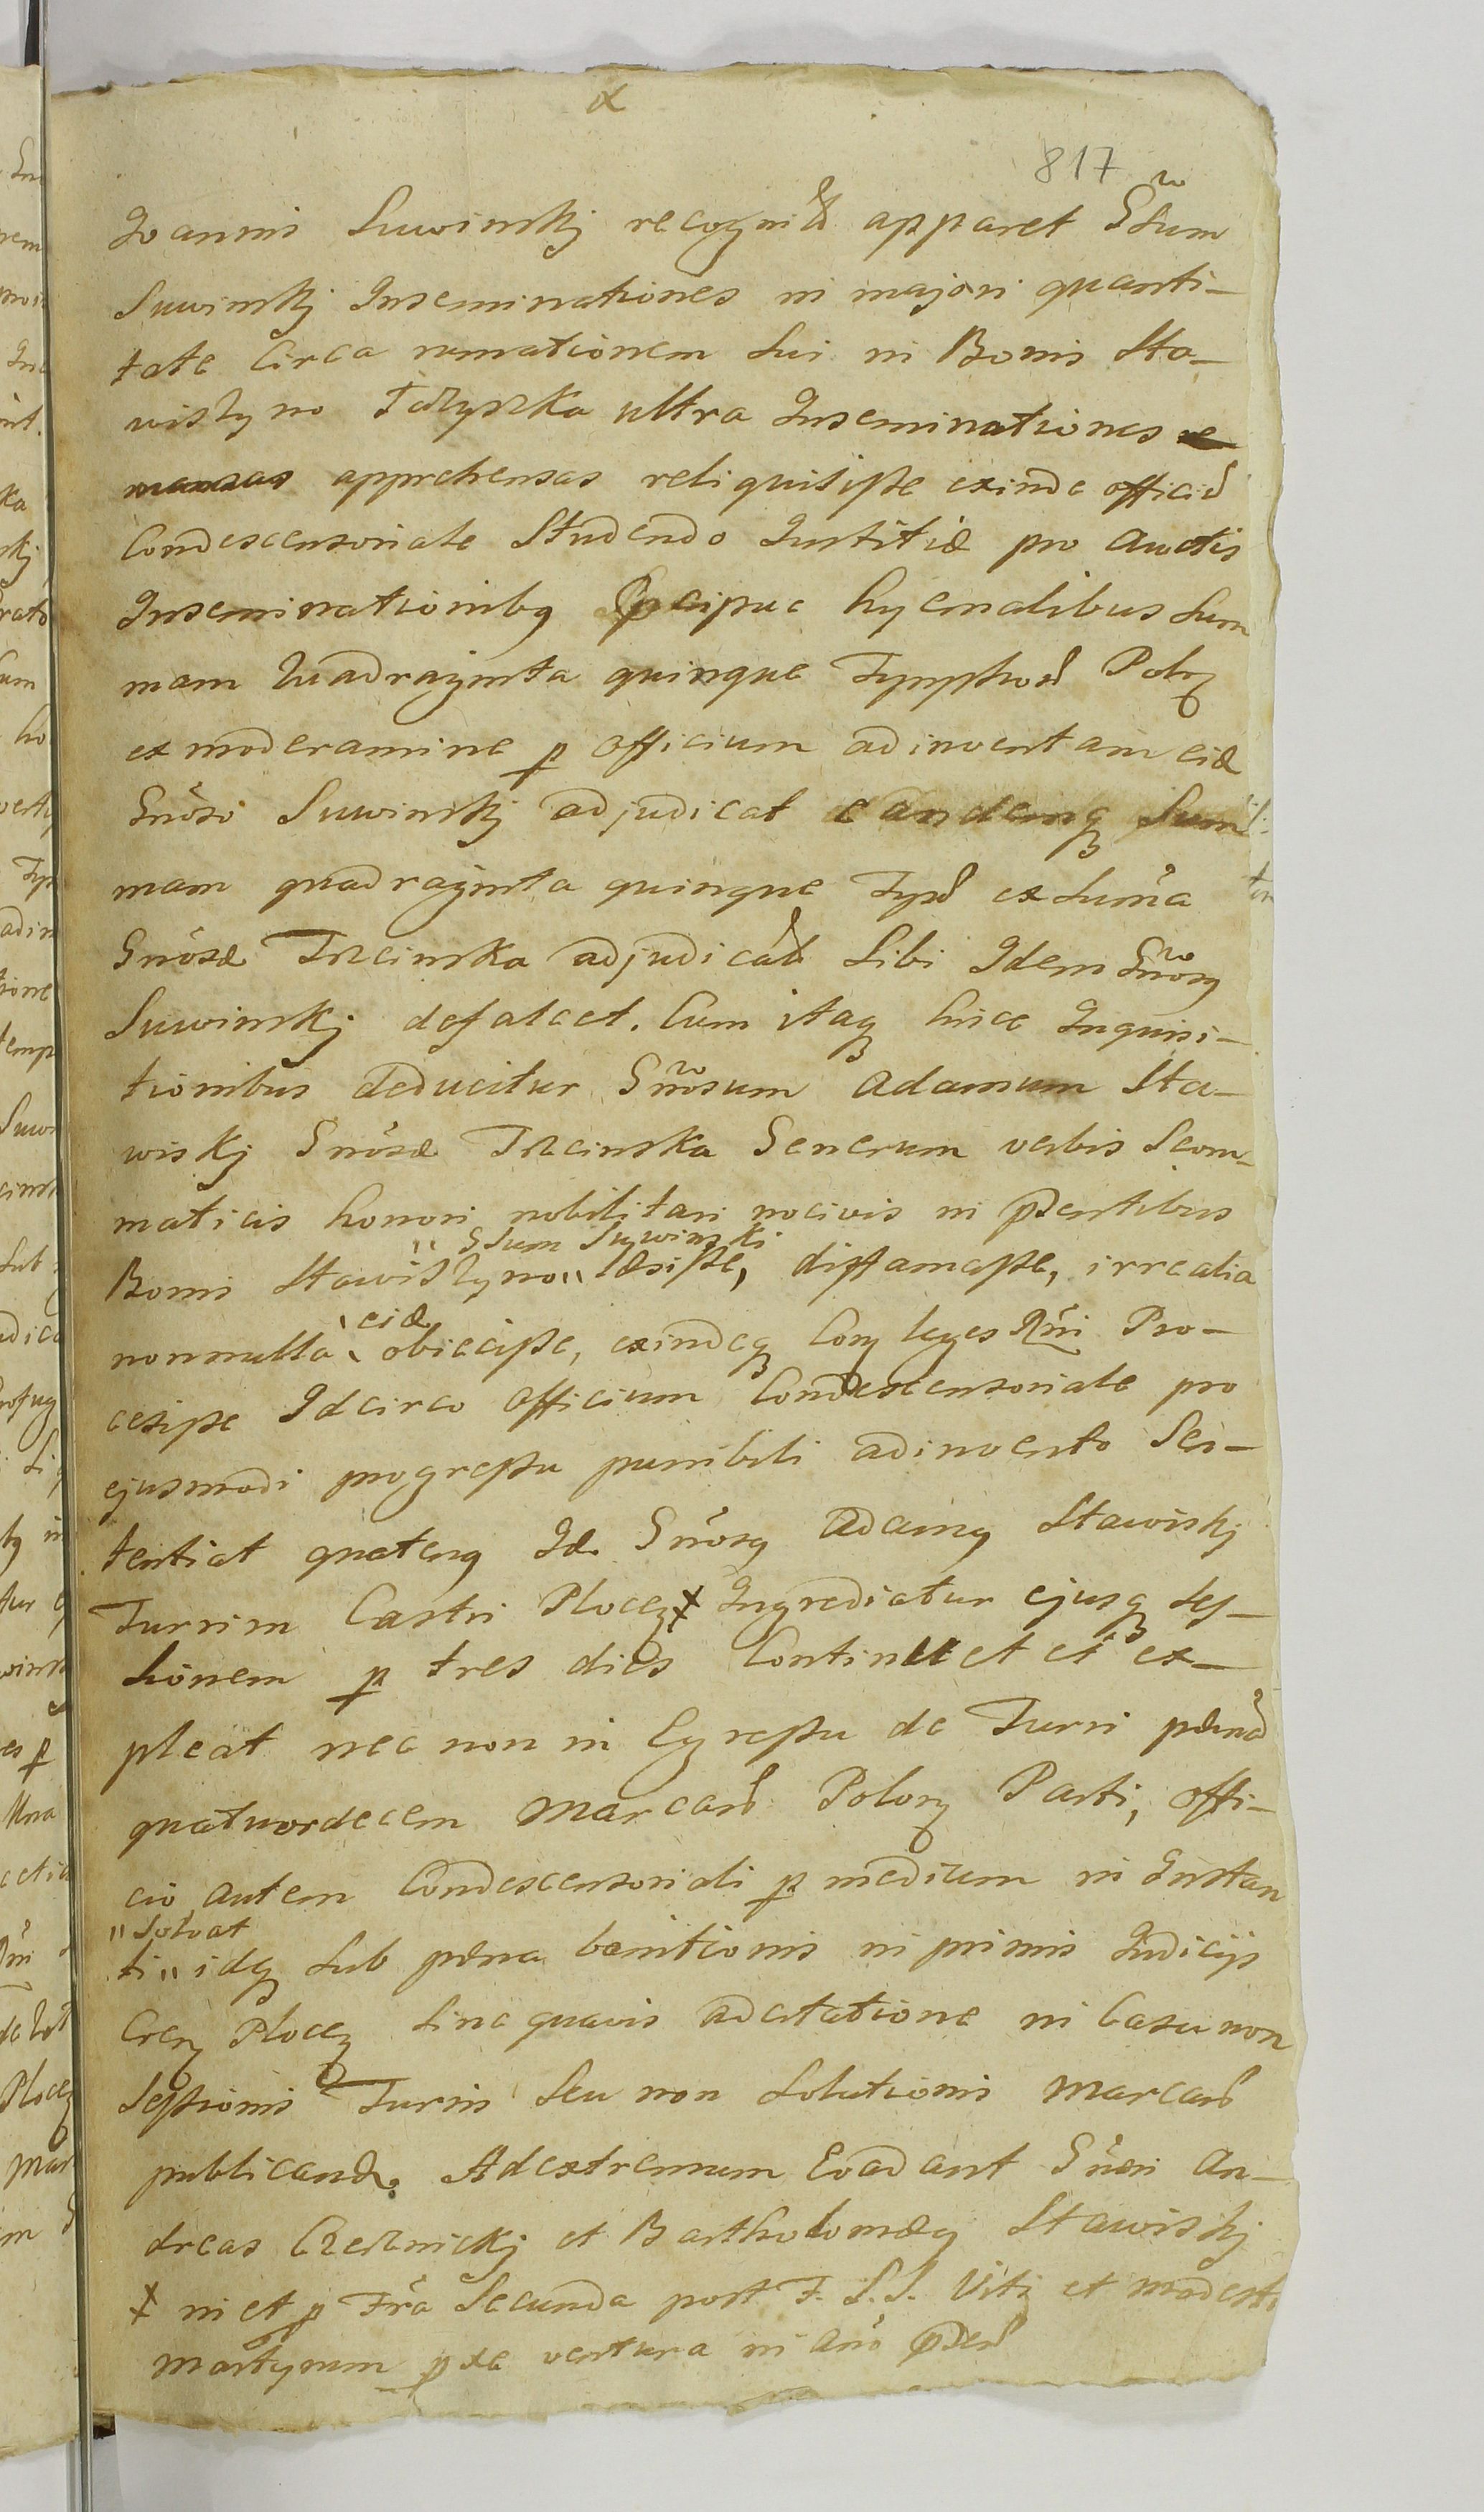 817
Joannis Suwinskj apparet Gsum
Suwinskj Inseminationes in majori quanti-
tate Circa rumationem Sui in Bonis Sta-
wiszyno ultra Inseminationes
apprehensas reliquisisse exinde officiu
Condescensoriale Studendo Justitiæ pro auctis
Inseminationibq hyemalibus Sum
mam Quadraginta quinque Tynphor Polo
ex moderamine p officium adinventam eid
Gnoso Suwinskj adjudicat eandemq Sum
mam quadraginta quinque Typh ex Suma
Gnosæ Trzcinska adjudicat Sibi Idem Gnosq
Suwinskj defalcet. Cum itaq hisce Inquisi-
tionibus deducitur Gnosum Adamum Sta-
wiskj Gnosæ Trzcinska Generum verbis Scom-
maticis honori nobilitari nocivis in pdentibus
" Gsum Suwinski
Bonis Stawiszyno " læsisse, diffamasse, irrealia
eid
nonnulla obiecisse, exindeq Con leges Rni Pro-
cesisse Idcirco Officium Condescensoriale pro
ejusmodi progressu punibili adinvento Sen-
tentiat quatenq Id. Gnosq Adamq Stawiskj
Turrim Castri Ploceñ ⁜ Ingrediatur ejusq Ses-
sionem p tres dies Continuet et ex-
pleat nec non in Egressu de Turri pænas
quatuordecem Marcarū Polon Parti, offi-
cio autem Condescensoriali p medium in Instan
" Solvat
ti " idq Sub pæna banitionis in primis Judicijs
Cren Plocen Sine quavis adcitatione in Casu non
Sessionis Turris Seu non Solutionis Marcarū
publicand. Ad extremum Evadant Gnosi An-
dreas Czernickj et Bartholomæq Stawiskj
⁜ in et p Fra Secunda post F. S.S. Viti et Modesti
Martyrum pxe ventura in Ano pden